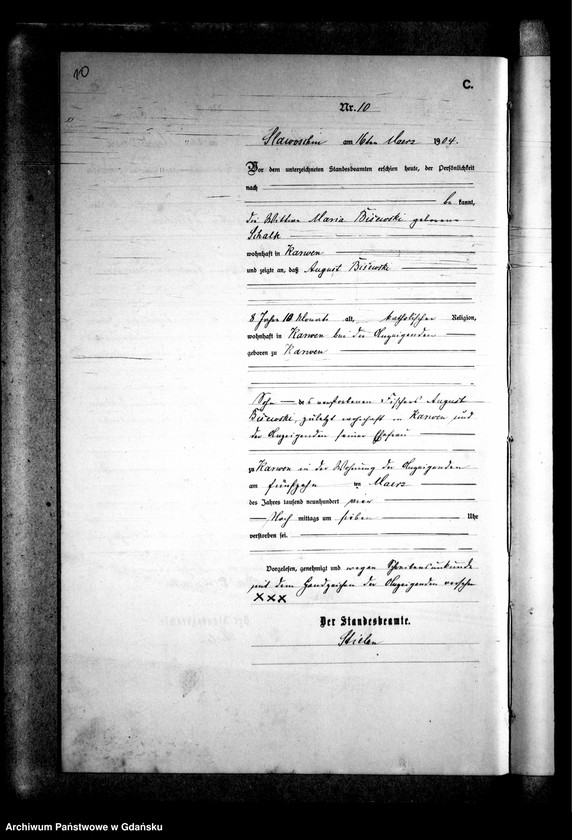 10
C.
Nr. 10
Slawoschin am 16ten Maerz 1904.
Vor dem unterzeichneten Standesbeamten erschien heute, der Persönlichkeit
nach
be kannt,
die Wittwe Maria Bisewski geborene
Schalk
wohnhaft in Karwen
und zeigte an, daß August Bisewski
8 Jahre 10 Monate alt, katholischer Religion,
wohnhaft in Karwen bei der Anzeigenden
geboren zu Karwen
Sohn des verstorbenen Fischers August
Bisewski, zuletzt wohnhaft in Karwen und
der Anzeigenden seiner Ehefrau
zu Karwen in der Wohnung der Anzeigenden
am fünfzehn ten Maerz
des Jahres tausend neunhundert vier
Nach mittags um sieben Uhr
verstorben sei.
Vorgelesen, genehmigt und wegen Schreibensunkunde
mit dem Handzeichen der Anzeigenden versehen
XXX
Der Standesbeamte.
Archiwum Państwowe w Gdańsku